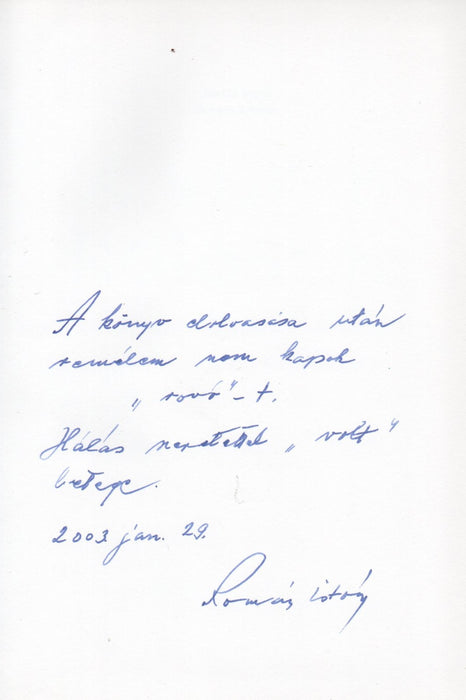 A könyv elolvasása után
remélem nem kapok
„rovó"-t.
Hálás szeretettel „volt"
betege.
2003. jan. 29.
Román István